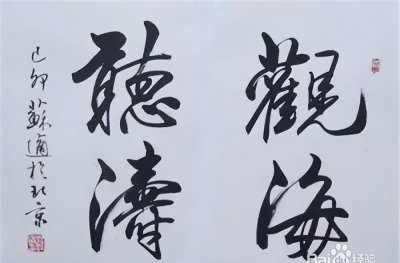 觀海
聽濤
己卯蘇適於北京
Baidu经验